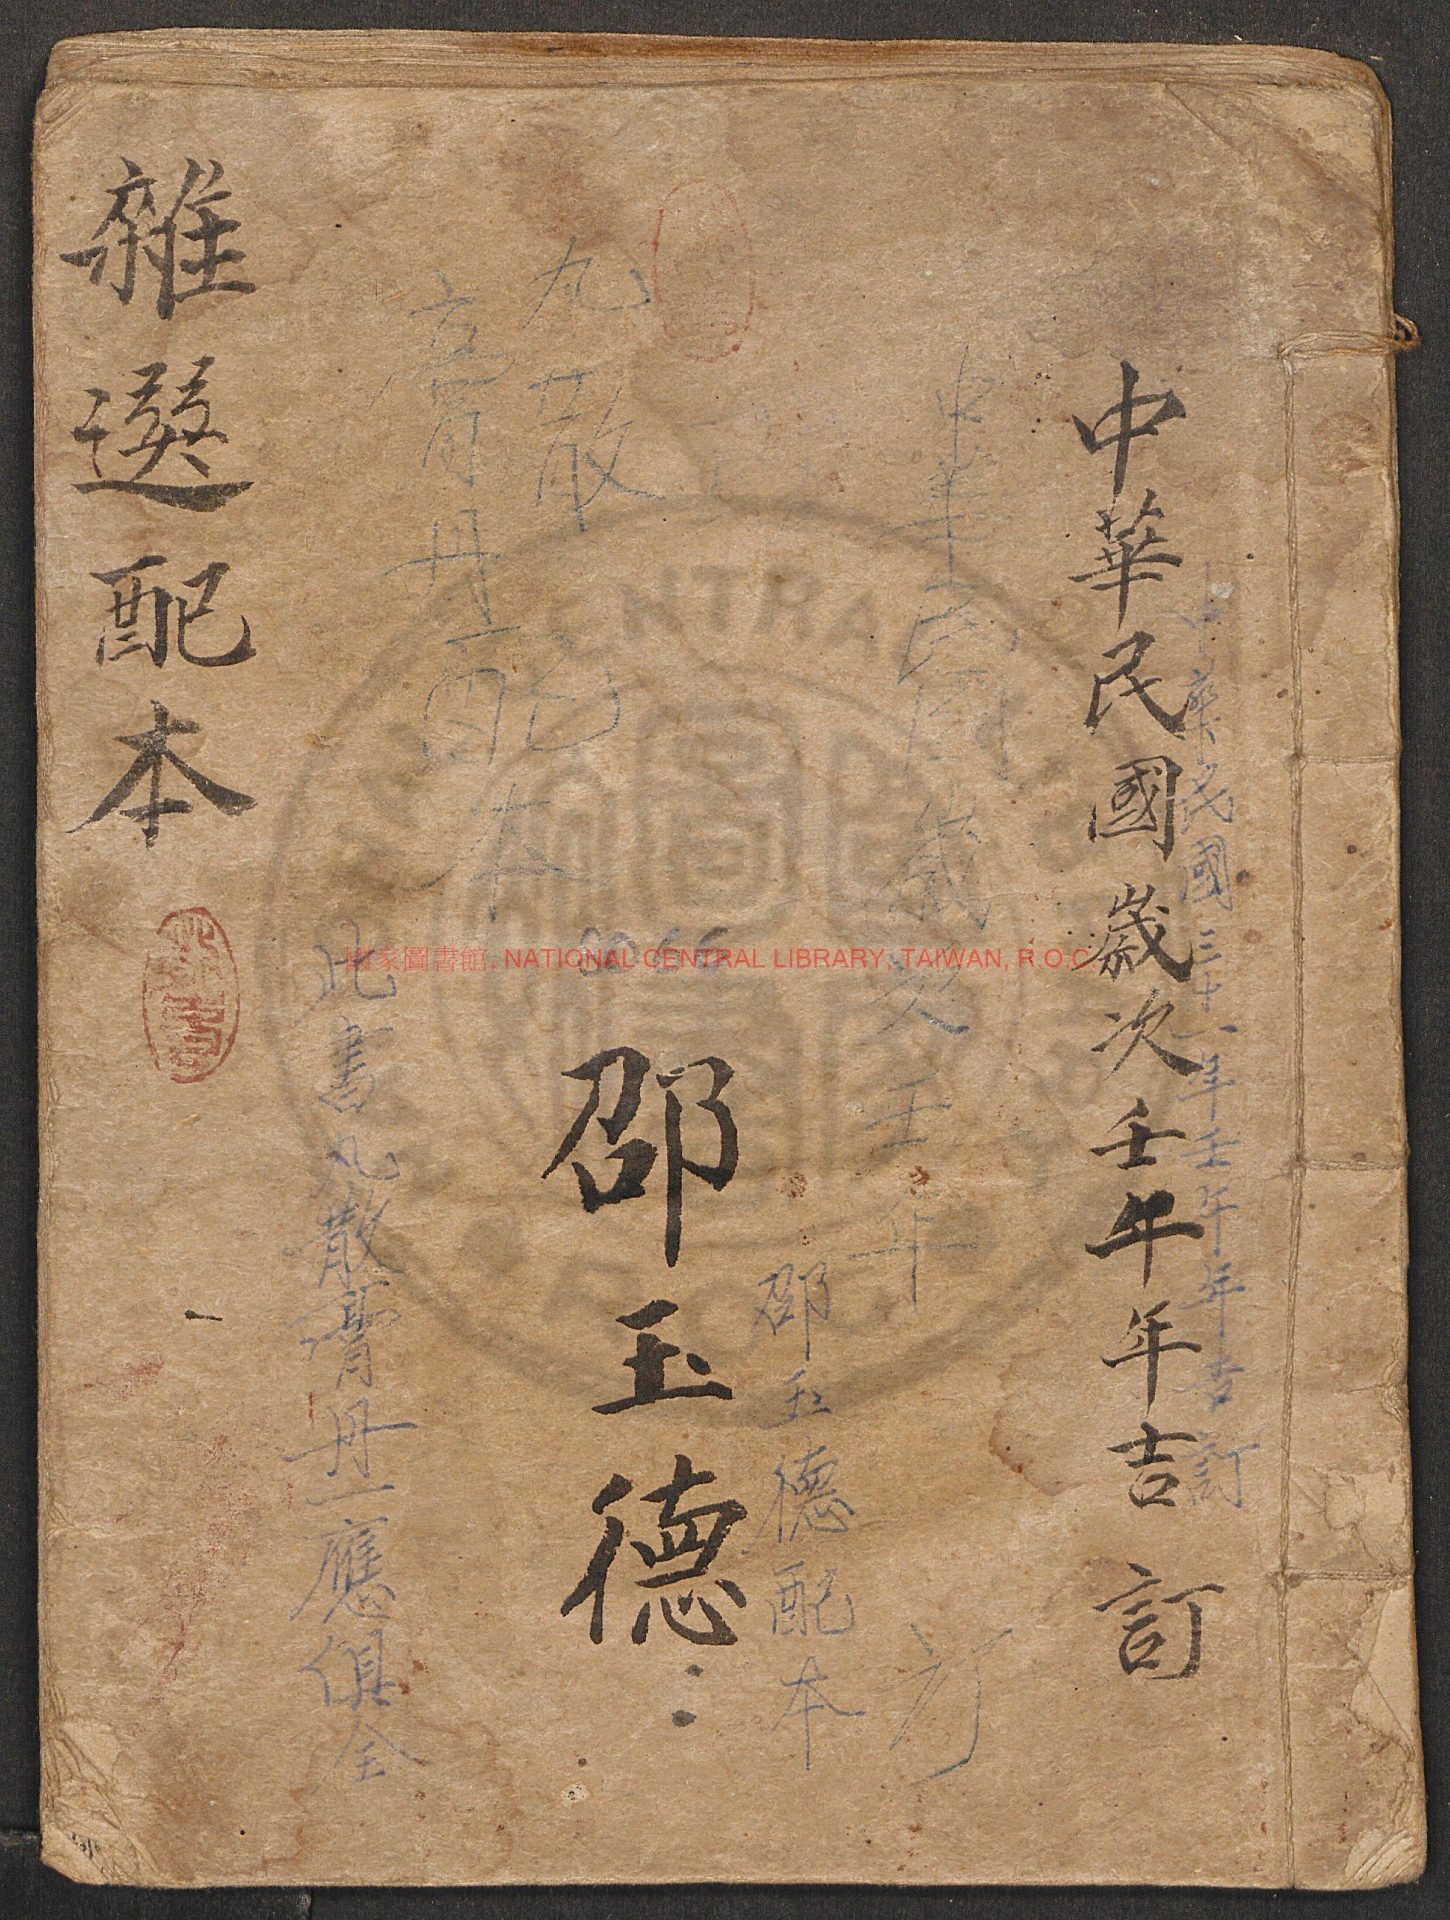 中華民國三十一年壬午年年吉訂
中華民國歲次壬午年吉訂
中華民國歲次壬午
訂
邵玉德配本
邵玉德
丸散
膏丹配本
此書丸散膏丹一應俱全
雜選配本
國家圖書館. NATIONAL CENTRAL LIBRARY, TAIWAN, R.O.C.